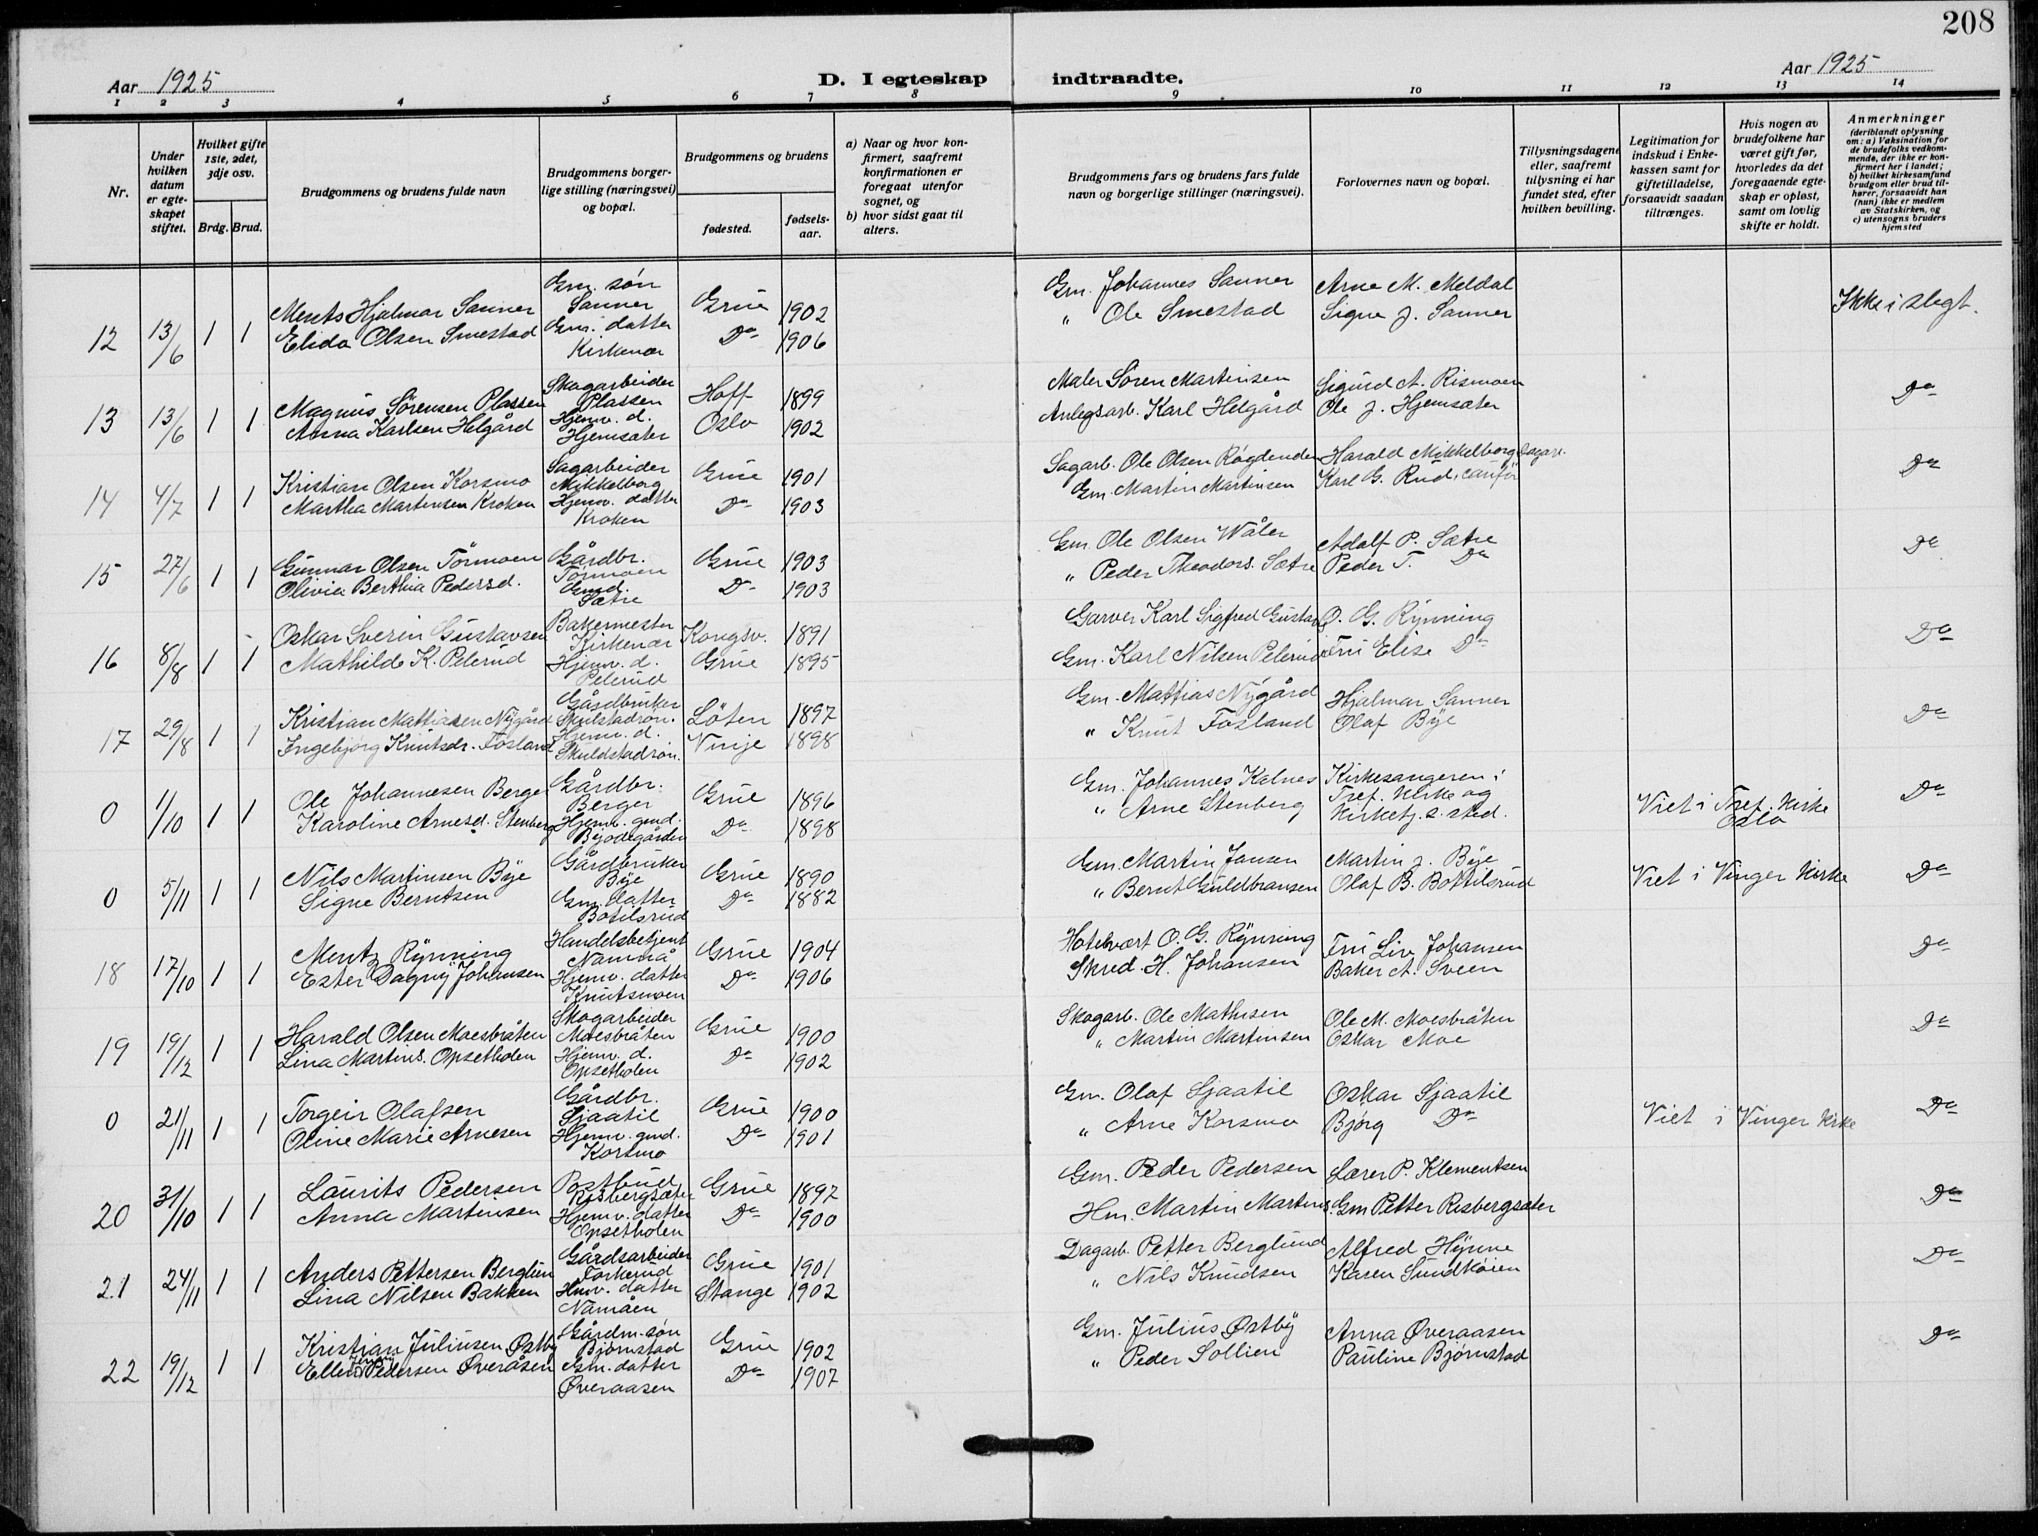 208
Aar 1925
D. I egteskap indtraadte.
Aar 1925
1 2 3 4 5 6 7 8 9 10 11 12 13 14
Nr.
Under hvilken datum er egteskapet stiftet.
Hvilket gifte 1ste, 2det, 3dje osv.
Brdg. Brud.
Brudgommens og brudens fulde navn
Brudgommens borgerlige stilling (næringsvei) og bopæl.
Brudgommens og brudens
fødested.
fødselsaar.
a) Naar og hvor konfirmert, saafremt konfirmationen er foregaat utenfor sognet, og
b) hvor sidst gaat til alters.
Brudgommens fars og brudens fars fulde navn og borgerlige stillinger (næringsvei).
Forlovernes navn og bopæl.
Tillysningsdagene eller, saafremt tillysning ei har fundet sted, efter hvilken bevilling.
Legitimation for indskud i Enkekassen samt for giftetilladelse, forsaavidt saadan tiltrænges.
Hvis nogen av brudefolkene har været gift før, hvorledes da det foregaaende egteskap er opløst, samt om lovlig skifte er holdt.
Anmerkninger (deriblandt oplysning om: a) Vaksination for de brudefolks vedkommende, der ikke er konfirmert her i landet; b) hvilket kirkesamfund brudgom eller brud tilhører, forsaavidt han (hun) ikke er medlem av Statskirken, og c) utensogns bruders hjemsted
12 13/6 1 1 Ments Hjalmar Sanner Gm. søn Sanner Grue 1902 Gm. Johannes Sanner Arne M. Meldal Ikke i slegt.
Elida Olsen Smestad Gm. datter Kirkenær Do 1906 " Ole Smestad Signe J. Sanner
13 13/6 1 1 Magnus Sørensen Plassen Skogarbeider Plassen Hoff 1899 Maler Søren Martinsen Sigurd A. Rismoen Do
Anna Karlsen Helgård Hjemv. d. Hjemsäter Oslo 1902 Anlegsarb. Karl Helgård Ole J. Hjemsäter
14 4/7 1 1 Kristian Olsen Korsmo Sagarbeider Mikkelborg Grue 1901 Sagarb. Ole Olsen Røgdenden Harald Mikkelborg Sagarb. Do
Martha Martinsen Kroken Hjemv. datter Kroken Do 1903 Gm. Martin Martinsen Karl G. Rud,
15 27/6 1 1 Gunnar Olsen Törmoen Gårdbr. Törmoen Grue 1903 Gm. Ole Olsen Wåler Adolf P. Sætre Do
Olivia Berthia Pedersd. Gmd. Sætre Do 1903 " Peder Theodors. Sætre Peder T. Do
16 8/8 1 1 Oskar Sverin Gustavsen Bakermester Kirkenær Kongsv. 1891 Garver Karl Sigfred Gustavs. O. G. Rynning Do
Mathilde K. Pelerud Hjemv. d. Pelerud Grue 1895 Gm. Karl Nilsen Pelerud Fru Elise Do
17 29/8 1 1 Kristian Mattiasen Nygård Gårdbruker Skulstadrøn. Löten 1897 Gm. Mattias Nygård Hjalmar Sanner Do
Ingebjørg Knutsdr. Fosland Hjemv. d. Skuldstadrøn. Vinje 1898 " Knut Fosland Olaf Bye
0 1/10 1 1 Ole Johannesen Berger Gårdbr. Berger Grue 1896 Gm. Johannes Kalnes Kirkesangeren i Tref. kirke og Viet i Tref. kirke Oslo Do
Karoline Arnesd. Stenberg Hjemv. gmd. Bøjodegården Do 1898 " Arne Stenberg Kirketj. s. sted.
0 5/11 1 1 Nils Martinsen Bye Gårdbruker Bye Grue 1890 Gm. Martin Jansen Martin J. Bye Viet i Vinger kirke Do
Signe Berntsen Gm. datter Botilsrud Do 1882 " Bernt Guldbransen Olaf B. Bottilsrud
18 17/10 1 1 Mentz Rynning Handelsbetjent Namnå Grue 1904 Hotelvært O. G. Rynning Fru Liv Johansen Do
Ester Dagny Johansen Hjemv. datter Knutsmoen Do 1906 Skred. H. Johansen Baker A. Sveen
19 19/12 1 1 Harald Olsen Moesbråten Skogarbeider Moesbråten Grue 1900 Skogarb. Ole Mathisen Ole M. Moesbråten Do
Lina Martins. Opsetholen Hjemv. d. Opsetholen Do 1902 " Martin Martinsen Oskar Moe
0 21/11 1 1 Torgeir Olafsen Gårdbr. Sjaatil Grue 1900 Gm. Olaf Sjaatil Oskar Sjaatil Viet i Vinger kirke Do
Oline Marie Arnesen Hjemv. gmd. Korsmo Do 1901 " Arne Korsmo Bjørg Do
20 31/10 1 1 Laurits Pedersen Postbud Risbergsæter Grue 1897 Gm. Peder Pedersen Lærer P. Klementsen Do
Anna Martinsen Hjemv. datter Opsetholen Do 1900 Hm. Martin Martins. Gm Petter Risbergsæter
21 24/11 1 1 Anders Pettersen Berglun Gårdsarbeider Forkerud Grue 1901 Dagarb. Petter Berglund Alfred Hynne Do
Lina Nilsen Bakken Hmv. datter Namåen Stange 1902 " Nils Knudsen Karen Sundkøien
22 19/12 1 1 Kristian Juliusen Østby Gårdm. søn Bjørnstad Grue 1902 Gm. Julius Østby Anna Øveraasen Do
Ellen Pedersen Øveråsen Gm. datter Øveraasen Do 1907 " Peder Sollien Pauline Bjørnstad